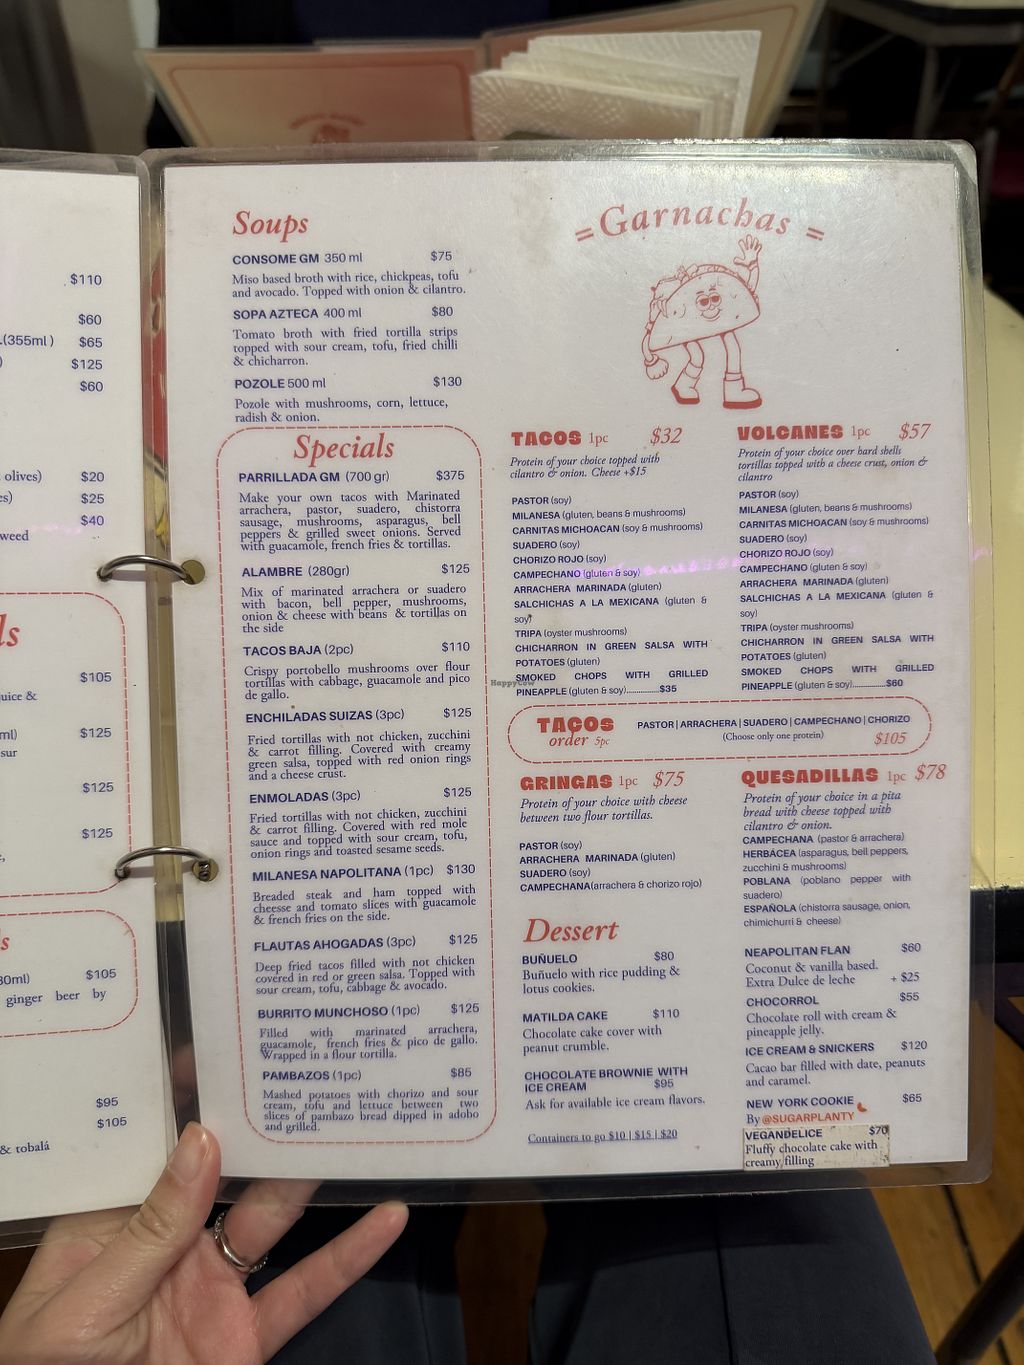 $110
$60
.(355ml)
$65
$125
$60
olives)
$20
$25
$40
weed
ls
$105
juice &
ml)
$125
sur
$125
$125
ls
30ml)
$105
ginger beer by
$95
$105
& tobalá
Soups
CONSOME GM 350 ml $75
Miso based broth with rice, chickpeas, tofu
and avocado. Topped with onion & cilantro.
SOPA AZTECA 400 ml $80
Tomato broth with fried tortilla strips
topped with sour cream, tofu, fried chilli
& chicharron.
POZOLE 500 ml $130
Pozole with mushrooms, corn, lettuce,
radish & onion.
Specials
PARRILLADA GM (700 gr) $375
Make your own tacos with Marinated
arrachera, pastor, suadero, chistorra
sausage, mushrooms, asparagus, bell
peppers & grilled sweet onions. Served
with guacamole, french fries & tortillas.
ALAMBRE (280gr) $125
Mix of marinated arrachera or suadero
with bacon, bell pepper, mushrooms,
onion & cheese with beans & tortillas on
the side
TACOS BAJA (2pc) $110
Crispy portobello mushrooms over flour
tortillas with cabbage, guacamole and pico
de gallo.
ENCHILADAS SUIZAS (3pc) $125
Fried tortillas with not chicken, zucchini
& carrot filling. Covered with creamy
green salsa, topped with red onion rings
and a cheese crust.
ENMOLADAS (3pc) $125
Fried tortillas with not chicken, zucchini
& carrot filling. Covered with red mole
sauce and topped with sour cream, tofu,
onion rings and toasted sesame seeds.
MILANESA NAPOLITANA (1pc) $130
Breaded steak and ham topped with
cheesse and tomato slices with guacamole
& french fries on the side.
FLAUTAS AHOGADAS (3pc) $125
Deep fried tacos filled with not chicken
covered in red or green salsa. Topped with
sour cream, tofu, cabbage & avocado.
BURRITO MUNCHOSO (1pc) $125
Filled with marinated arrachera,
guacamole, french fries & pico de gallo.
Wrapped in a flour tortilla.
PAMBAZOS (1pc) $85
Mashed potatoes with chorizo and sour
cream, tofu and lettuce between two
slices of pambazo bread dipped in adobo
and grilled.
=Garnachas=
TACOS 1pc $32
Protein of your choice topped with
cilantro & onion. Cheese +$15
PASTOR (soy)
MILANESA (gluten, beans & mushrooms)
CARNITAS MICHOACAN (soy & mushrooms)
SUADERO (soy)
CHORIZO ROJO (soy)
CAMPECHANO (gluten & soy)
ARRACHERA MARINADA (gluten)
SALCHICHAS A LA MEXICANA (gluten &
soy)
TRIPA (oyster mushrooms)
CHICHARRON IN GREEN SALSA WITH
POTATOES (gluten)
SMOKED CHOPS WITH GRILLED
PINEAPPLE (gluten & soy)...............$35
VOLCANES 1pc $57
Protein of your choice over hard shells
tortillas topped with a cheese crust, onion &
cilantro
PASTOR (soy)
MILANESA (gluten, beans & mushrooms)
CARNITAS MICHOACAN (soy & mushrooms)
SUADERO (soy)
CHORIZO ROJO (soy)
CAMPECHANO (gluten & soy)
ARRACHERA MARINADA (gluten)
SALCHICHAS A LA MEXICANA (gluten &
soy)
TRIPA (oyster mushrooms)
CHICHARRON IN GREEN SALSA WITH
POTATOES (gluten)
SMOKED CHOPS WITH GRILLED
PINEAPPLE (gluten & soy)...............$60
HappyCow
TACOS
order 5pc
PASTOR | ARRACHERA | SUADERO | CAMPECHANO | CHORIZO
(Choose only one protein)
$105
GRINGAS 1pc $75
Protein of your choice with cheese
between two flour tortillas.
PASTOR (soy)
ARRACHERA MARINADA (gluten)
SUADERO (soy)
CAMPECHANA(arrachera & chorizo rojo)
QUESADILLAS 1pc $78
Protein of your choice in a pita
bread with cheese topped with
cilantro & onion.
CAMPECHANA (pastor & arrachera)
HERBÁCEA (asparagus, bell peppers,
zucchini & mushrooms)
POBLANA (poblano pepper with
suadero)
ESPAÑOLA (chistorra sausage, onion,
chimichurri & cheese)
Dessert
BUÑUELO $80
Buñuelo with rice pudding &
lotus cookies.
MATILDA CAKE $110
Chocolate cake cover with
peanut crumble.
CHOCOLATE BROWNIE WITH
ICE CREAM $95
Ask for available ice cream flavors.
Containers to go $10 | $15 | $20
NEAPOLITAN FLAN $60
Coconut & vanilla based.
Extra Dulce de leche + $25
CHOCORROL $55
Chocolate roll with cream &
pineapple jelly.
ICE CREAM & SNICKERS $120
Cacao bar filled with date, peanuts
and caramel.
NEW YORK COOKIE $65
By @SUGARPLANTY
VEGANDELICE $70
Fluffy chocolate cake with
creamy filling